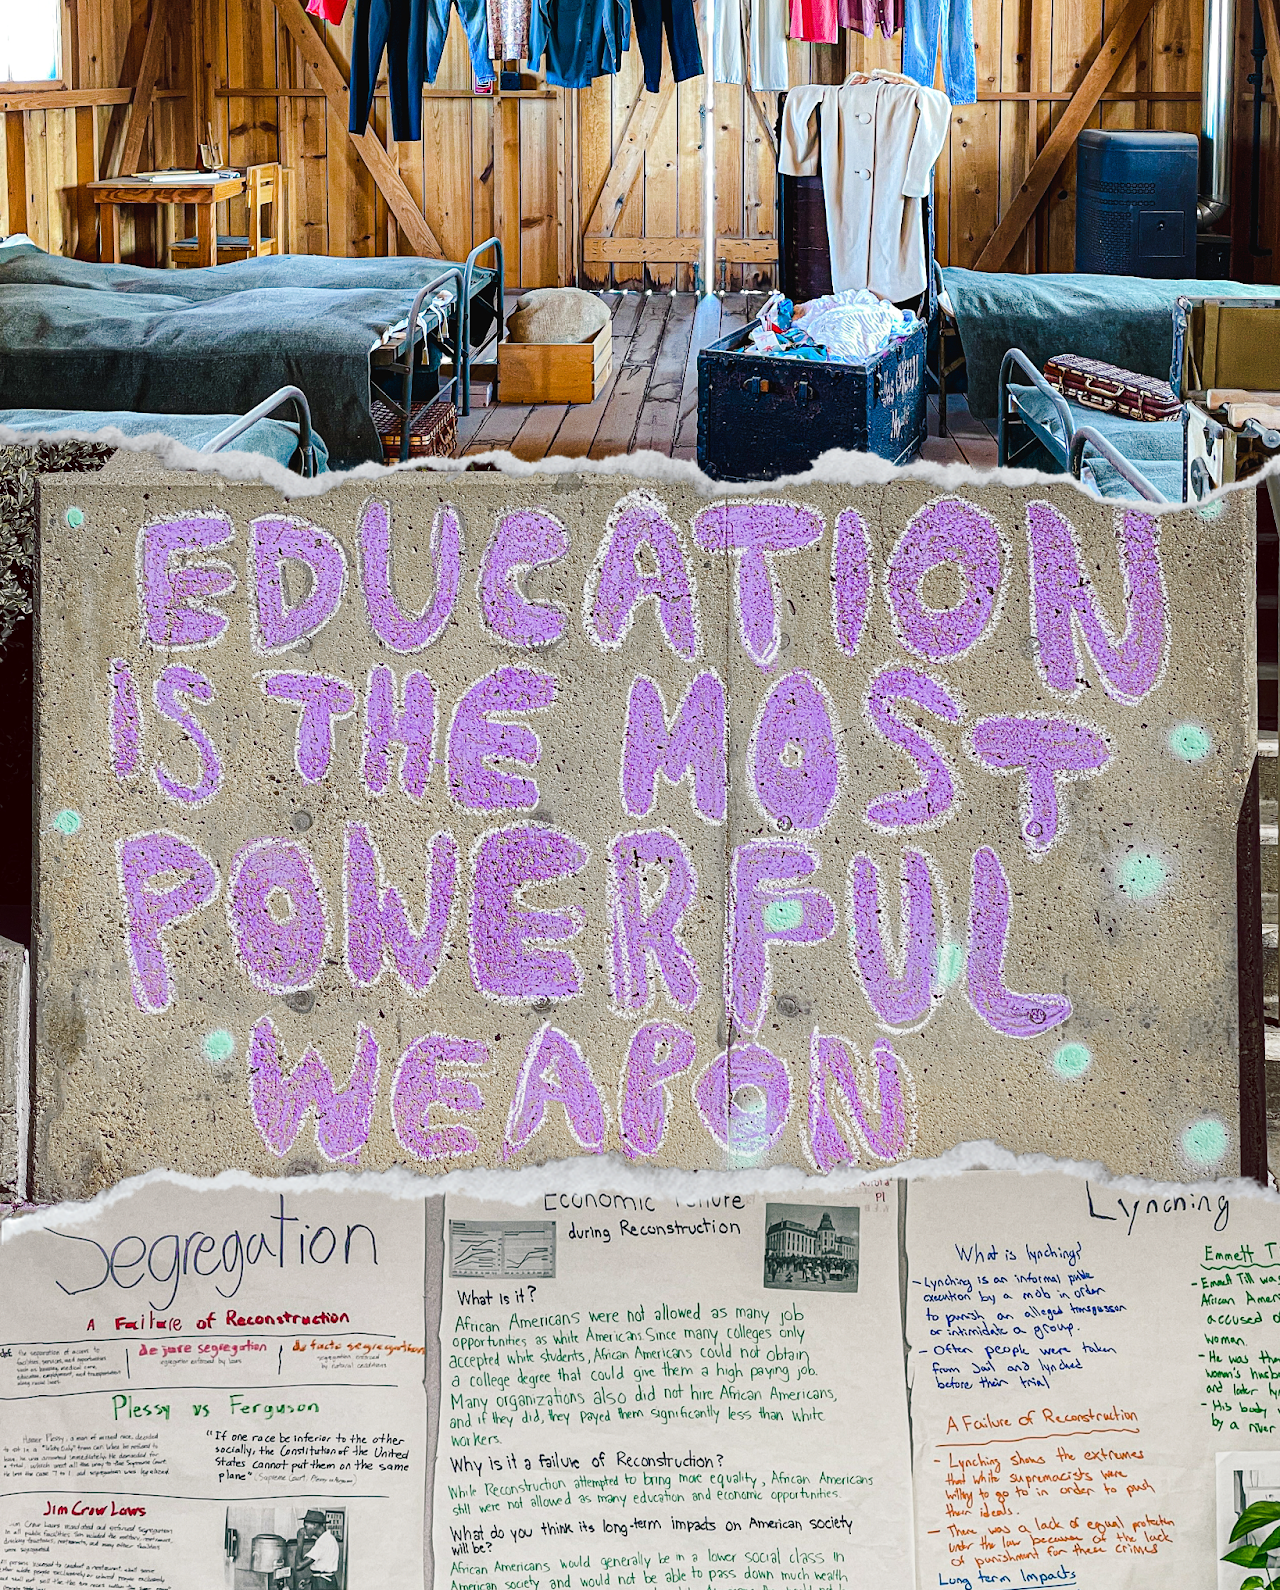 EDUCATION
IS THE MOST
POWERFUL
WEAPON
Segregation
A Failure of Reconstruction
de jure segregation
segregation enforced by laws
de facto segregation
Plessy vs Ferguson
"If one race be inferior to the other
socially, the Constitution of the United
States cannot put them on the same
plane"
Jim Crow Laws
Economic Failure
during Reconstruction
What is it?
African Americans were not allowed as many job
opportunities as white Americans. Since many colleges only
accepted white students, African Americans could not obtain
a college degree that could give them a high paying job.
Many organizations also did not hire African Americans,
and if they did, they payed them significantly less than white
workers.
Why is it a failure of Reconstruction?
While Reconstruction attempted to bring more equality, African Americans
still were not allowed as many education and economic opportunities.
What do you think its long-term impacts on American society
will be?
African Americans would generally be in a lower social class in
American society and would not be able to pass down much wealth
Lynching
What is lynching?
- Lynching is an informal public
execution by a mob in order
to punish an alleged transgressor
or intimidate a group.
- Often people were taken
from Jail and lynched
before their trial
A Failure of Reconstruction
- Lynching shows the extremes
that white supremacists were
willing to go to in order to push
their ideals.
- There was a lack of equal protection
under the law because of the lack
of punishment for these crimes
Long term Impacts
Emmett T
- Emmett Till was
African Amer
accused of
woman.
- He was th
woman's husb
and later ly
- His body
by a river